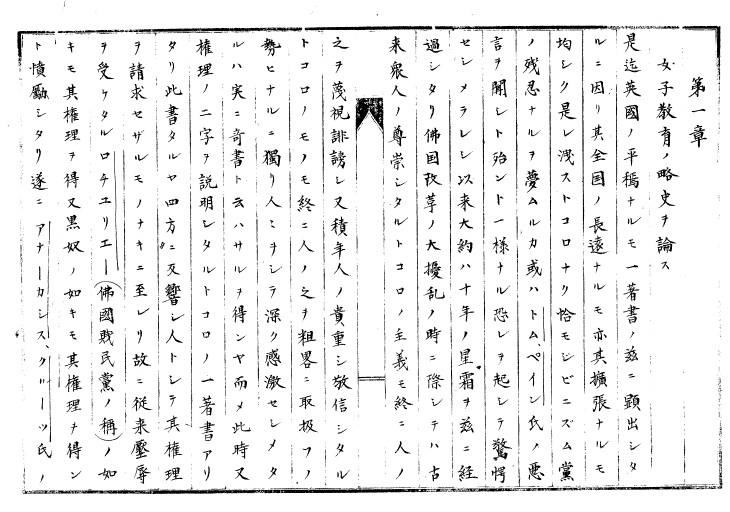 第一章
女子教育ノ略史ヲ論ス
是迄英國ノ平穏ナルモ一著書ノ茲ニ顕出シタ
ルニ因リ其全国ノ長遠ナルモ亦其擴張ナルモ
均シク是レ洩ストコロナリ恰モシビニズム黨
ノ残忍ナルヲ夢ムルカ或ハトム、ペイン氏ノ悪
言ヲ聞シト殆ント一様ナル恐レヲ起シテ驚愕
セシメラレシ以来大約ハ十年ノ星霜ヲ茲ニ経
過シタリ佛国改革ノ大擾乱ノ時ニ際シテハ古
来衆人ノ尊崇シタルトコロノ主義モ終ニ人ノ
之ヲ蔑視誹謗シ又積年人ノ貴重シ敬信シタル
トコロノモノモ終ニ人ノ之ヲ粗畧ニ取扱フノ
勢ヒナルニ獨リ人ミヲシテ深ク感激セシメタ
ルハ実ニ奇書ト云ハサルヲ得ンヤ而メ此時又
権理ノ二字ヲ説明シタルトコロノ一著書アリ
タリ此書タルヤ四方ニ反響シ人トシテ其権理
ヲ請求セザルモノナキニ至レリ故ニ従来壓辱
ヲ受ケタルロチユリエー(佛國賎民黨ノ称)ノ如
キモ其権理ヲ得又黒奴ノ如キモ其権理ヲ得ン
ト憤勵シタリ遂ニアナーカシス、クルーツ氏ノ